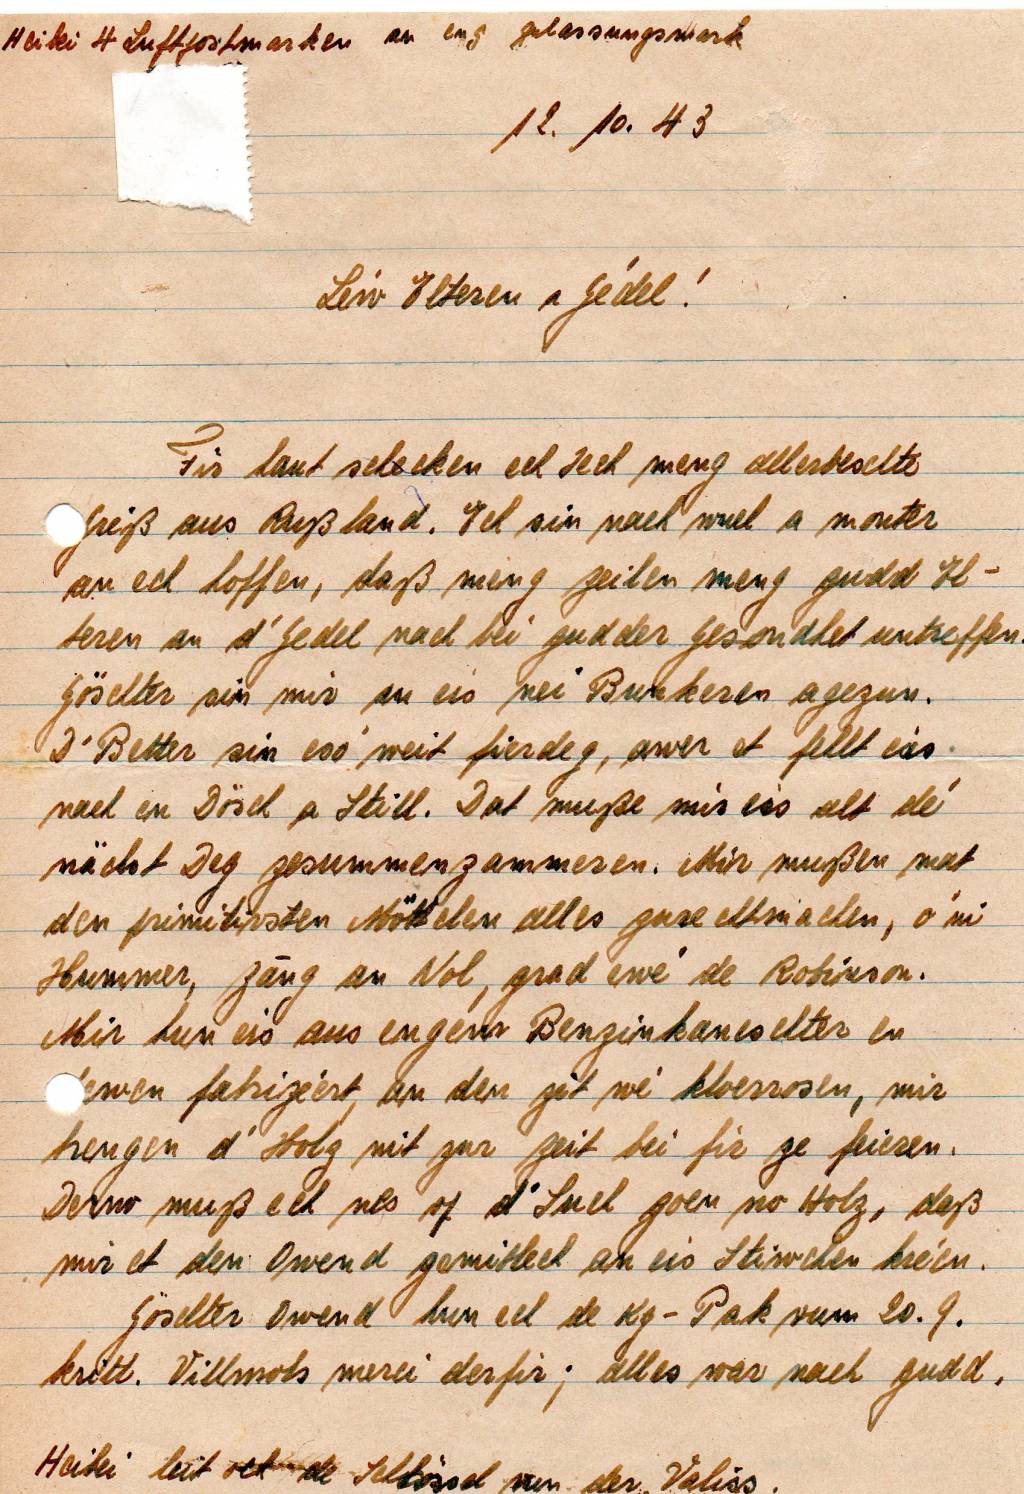 Heibei 4 Luftpostmarken an eng zulassungsmark
12. 10. 43
Léiw Elteren a Gédel!
Fir haut schecken ech Iech meng allerbeschte
Gréiß aus Rußland. Ech sin nach wuel a monter
an ech hoffen, daß meng zeilen meng gudd El-
teren an d'Gedel nach bei gudder Gesondhet untreffen.
Göschter sin mir an eis nei Bunkeren agezun.
D'Better sin esó weit fierdeg, awer et fellt eis
nach en Dösch a Still. Dat muße mir eis alt dé
nächst Deg zesummenzammeren. Mir mußen mat
den primitivsten Möttelen alles zurechtmachen, ó ni
Hummer, Zäng an Nol, grad ewé de Robinson.
Mir hun eis aus engem Benzinkaneschter en
ewen fabrizéert, an den zit wé kloerrosen, mir
brengen d'Holz nit zur zeit bei fir ze feieren.
Derno muß ech nes op d'Such goen no Holz, daß
mir et den Owend gemittlech an eis Stiwchen kréen.
Göschter Owend hun ech de Kg-Pak vum 20. 9.
kritt. Villmols merci derfir; alles war nach gudd.
Heibei leit de Schlössel vun der Valiss.